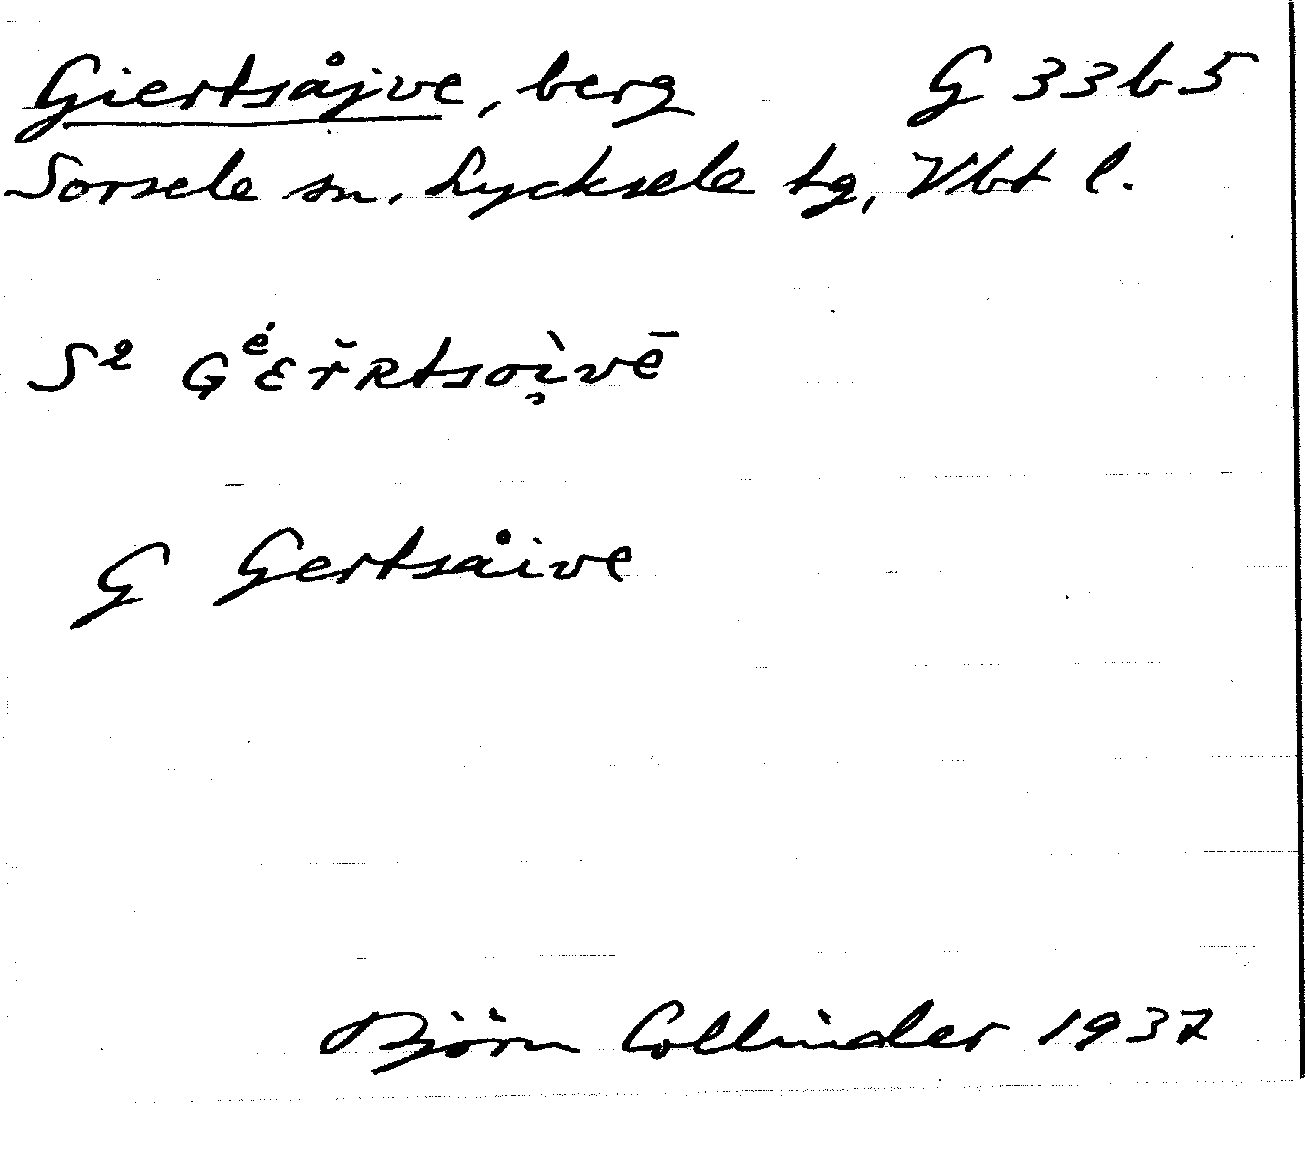 Giertsåjve, berg G 33b5
Sorsele sn. Lycksele tg, Vbt l.
S² Gᵉ́ɛr̆ʀtsoì̮vē
G Gertsåive
Björn Collinder 1937